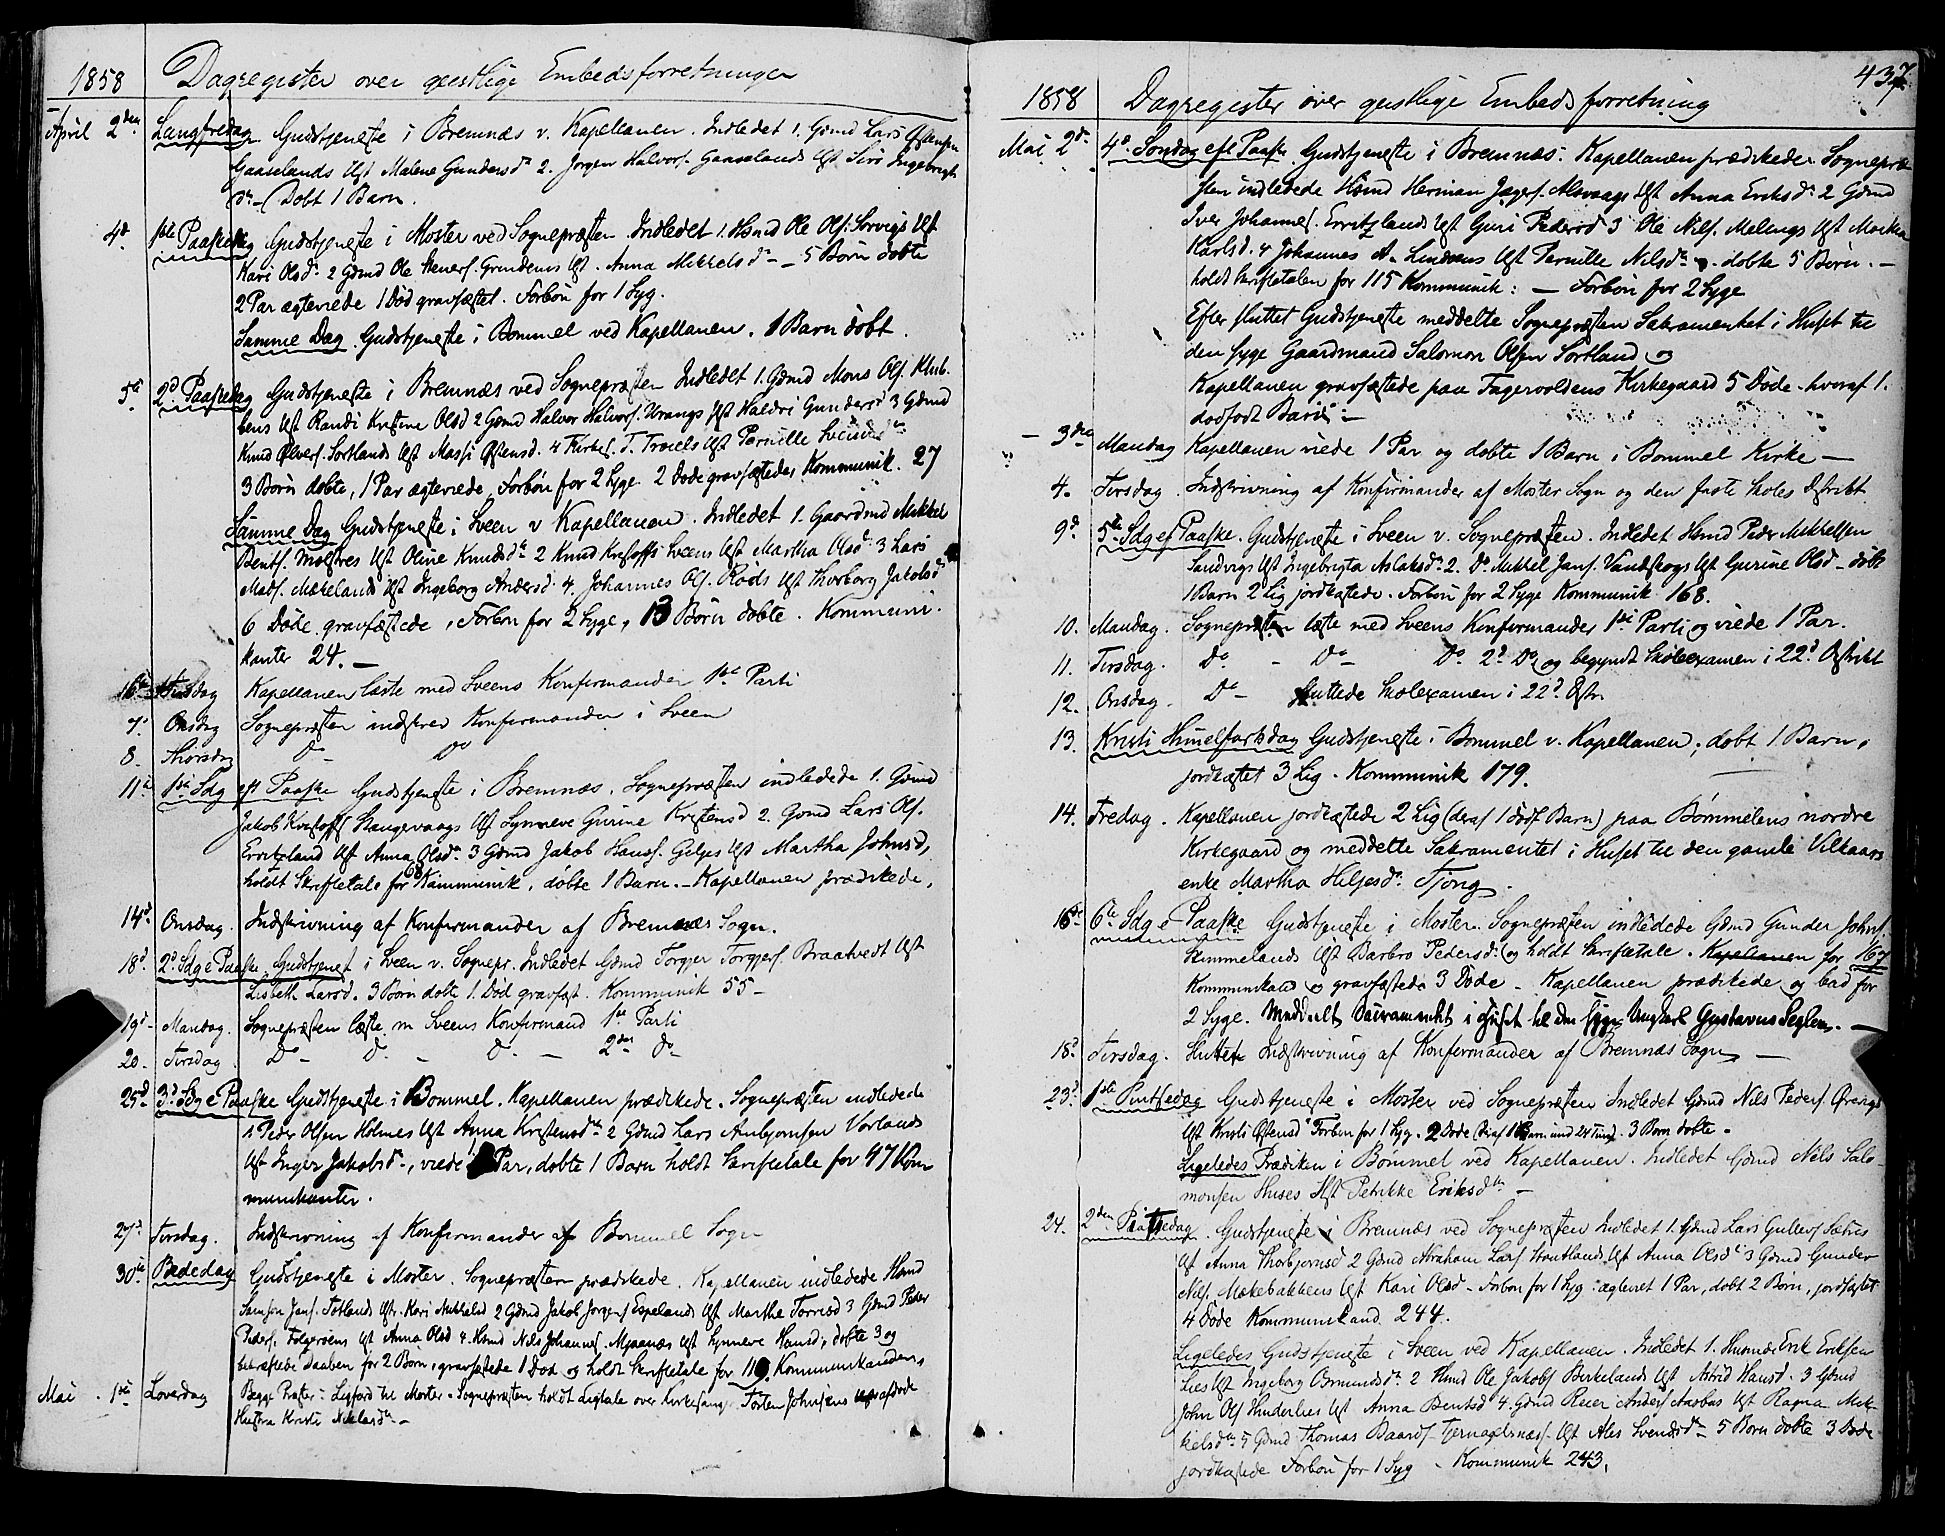 1858 Dagregister over geistlige Embedsforretninger
April 2den Langfredag Gudstjeneste i Bremnæs v. Kapellanen. Indledet 1. Gdmd Lars
Gaaselands Hst Malene Gundersdr 2. Jørgen Halvors. Gaaselands Hst Siri Ingebrigts
dr – Døbt 1 Barn.
4d 1ste Paaskedag Gudstjeneste i Moster ved Sognepræsten. Indledet 1. Hsmd Ole Ols. Hst
Kari Olsdr 2 Gdmd Ole Steners. Hst. Anna Mikkelsdr – 5 Børn døbte
2 Par ægteviede 1 Død gravfæstet. Forbøn for 1 Syg.
Samme Dag Gudstjeneste i Bømmel ved Kapellanen. 1 Barn døbt.
5te 2d Paaskedag Gudstjeneste i Bremnæs ved Sognepræsten Indledet 1. Gdmd Mons Ols. Klub.
bens Hst Randi Kristine Olsd 2 Gdmd Halvor Halvors. Vrangs Hst Haldri Gundersd 3 Gdmd
Knud Sortlands Hst Massi Østensd. 4 T. Troels Hst Pernille
3 Børn døbte, 1 Par ægteviede, Forbøn for 2 Syge 2 Døde gravfæstede, Kommunik. 27
Samme Dag Gudstjeneste i Sveen v Kapellanen. Indledet 1. Gaardmd Mikkel
Bents. Hst Oline Knudsdr 2 Knud Kristoffs Sveens Hst Martha Olsd 3 Lars
Mads. Mækelands Hst Ingeborg Andersd 4. Johannes Ols. Røds Hst Thorborg Jakobsd
6 Døde gravfæstede, Forbøn for 2 Syge, 13 Børn døbte. Kommuni-
kanter 24. –
Tirsdag Kapellanen læste med Sveens Konfirmander 1ste Parti
7d Onsdag Sognepræsten indskrev Konfirmander i Sveen
8. Thorsdag Do – Do
11te 1ste Sdg eft Paaske Gudstjeneste i Bremnæs. Sognepræsten indledede 1. Gdmd
Jakob Kristoffs Stangevaags Hst Synneve Gurine Kristensd 2. Gdmd Lars Ols.
Ervitzland Hst Anna Olsdr 3 Gdmd Jakob Hanss. Hst Martha Johnsd,
holdt Skriftetale for 68 Kommunik, døbte 1 Barn. – Kapellanen prædikede.
14d Onsdag. Indskrivning af Konfirmander af Bremnæs Sogn.
18d 2d Sdg e Paaske Gudstjenest i Sveen v. Sognepr. Indledet Gdmd Torgjer Torgjers. Braatvedt Hst
Lisbeth Larsd. 3 Børn døbte 1. Død gravfæst. Kommunik 55 –
19d – Mandag. Sognepræsten læste m Sveens Konfirmand 1ste Parti
20. Tirsdag Do – Do – Do – 2den Do
25d 3d Sdg e Paaske Gudstjeneste i Bømmel. Kapellanen prædikede. Sognepræsten indledede
1. Peder Olsen Holmes Hst Anna Kristensdr 2 Gdmd Lars Anbjørnsen Vorlands
Hst Inger Jakobsdr, viede Par, døbte 1 Barn holdt Skriftetale for 47 Kom
munikanter.
27d Tirsdag. Indskrivning af Konfirmander af Bømmel Sogn
30te Bededag Gudstjeneste i Moster. Sognepræsten prædikede. Kapellanen indledede Hsmd
Samson Jans. Totlands Hstr. Kari Mikkelsd 2 Gdmd Jakob Jørgens Espelands Hst Marthe Torrisd 3 Gdmd Peder
Peders. Hst Anna Olsd 4. Hsmd Nils Johannes. Hst Synneve Hansd, døbte 3 og
bekræftede Daaben for 2 Børn, gravfæstede 1 Død og holdt Skriftetale for 119 Kommunikander,
Mai 1ste Løverdag Begge Præster i Ligfærd til Moster. Sognepræsten holdt Ligtale over Kirkesanger Torsten Johnsens afdøde
Hustru Kristi Nielsdr –
437
1858 Dagregister over geistlige Embedsforretning
Mai 2d 4d Søndag eft Paaske Gudstjeneste i Bremnæs. Kapellanen prædikede. Sognepræ
sten indledede Hsmd Herman Jægers. Alsvaags Hst Anna Eriksdr 2 Gdmd
Iver Johannes. Ervitzlands Hst Guri Pedersd 3 Ole Nils. Melings Hst Martha
Karlsd. 4 Johannes A. Hst Pernille Nilsdr . døbte 5 Børn. –
holdt Skriftetalen for 115 Kommunik: – Forbøn for 2 Syge
Efter sluttet Gudstjeneste meddelte Sognepræsten Sakramentet i Huset til
den syge Gaardmand Salomon Olsen Sortland og
Kapellanen gravfæstede paa Fagervoldens Kirkegaard 5 Døde – hvoraf 1.
dødfødt Barn –
– 3die Mandag Kapellanen viede 1 Par og døbte 1 Barn i Bømmel Kirke –
4. Tirsdag. Indskrivning af Konfirmander af Moster Sogn og den faste Skoles Distrikt
9d 5te Sdg ef Paaske. Gudstjeneste i Sveen v. Sognepræsten. Indledet Hsmd Peder Mikkelsen
Sandvigs Hst Ingebrigta Aslaksdr 2. Do Mikkel Jans. Vandskogs Hst Gurine Olsd – døbt
1 Barn 2 Lig jordkastede. Forbøn for 2 Syge Kommunik 168.
10. Mandag. Sognepræsten læste med Sveens Konfirmander 1ste Parti og viede 1 Par.
11. Tirsdag. Do – Do – Do 2d Do og begyndt Skoleexamen i 22d Distrikt
12. Onsdag. Do – sluttede Skolexamen i 22d Distr.
13. Kristi Himelfartsdag Gudstjeneste i Bømmel v. Kapellanen, døbt 1 Barn,
jordkastet 3 Lig. Kommunik 179.
14. Fredag. Kapellanen jordkastede 2 Lig (deraf 1 dødf. Barn) paa Bømmelens nordre
Kirkegaard og meddelte Sakramentet i Huset til den gamle Vilkaars
enke Martha Hiljesdr Tjong.
16de 6te Sdg e Paaske Gudstjeneste i Moster. Sognepræsten indledede Gdmd Gunder Johns.
Hst Barbro Pedersd. (og holdt Skriftetale. Kapellanen for 167
Kommunikan og gravfæstede 3 Døde – Kapellanen prædikede og bad for
2 Syge. Meddeelt Sacramentet i Huset til den syge Ungkarl Gustavus Seglem. –
18d Tirsdag. Sluttet Indskrivning af Konfirmander af Bremnæs Sogn –
23d 1ste Pintsedag Gudstjeneste i Moster ved Sognepræsten Indledet Gdmd Nils Peders.
Hst Kristi Østensd Forbøn for 1 Syg. 2 Døde (deraf 1 Barn und 24 Tim). 3 Børn døbte.
Ligeledes Prædiken i Bømmel ved Kapellanen. Indledet Gdmd Nils Salo-
monsen Huses Hst Petrikke Eriksdtr –
24. 2den Pintsedag. Gudstjeneste i Bremnæs ved Sognepræsten Indledet 1. Gdmd Lars Gullevs Sætres
Hst Anna Thorbjørnsd 2 Gdmd Abraham Lars. Stautlands Hst Anna Olsd 3 Gdmd Gunder
Nils. Mækebakkens Hst Kari Olsd – Forbøn for 1 Syg: ægteviet 1 Par, døbt 2 Børn, jordfæstet
4 Døde Kommunikand 244.
Ligeledes Gudstjeneste i Sveen ved Kapellanen. Indledet 1. Erik Eriksen
Lies Hst Ingeborg Ormundsdr 2 Hsmd Ole Jakobs Birkelands Hst Astrid Hansd. 3 Gdmd
John Ols Hinderlies Hst Anna Bentsd 4. Gdmd Reier Anders Aasbøs Hst Ragna Mik-
kelsdtr 5 Gdmd Thomas Baards. Tjernagelsnæs. Hst Ales Svendsdr – 5 Børn døbte 3 Døde
jordkastede Forbøn for 1 Syg – Kommunik 243.